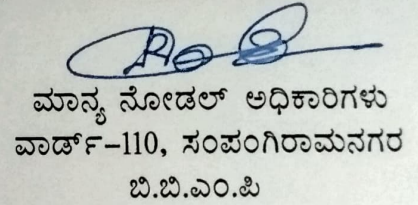 ಮಾನ್ಯ ನೋಡಲ್ ಅಧಿಕಾರಿಗಳು
ವಾರ್ಡ್-110, ಸಂಪಂಗಿರಾಮನಗರ
ಬಿ.ಬಿ.ಎಂ.ಪಿ